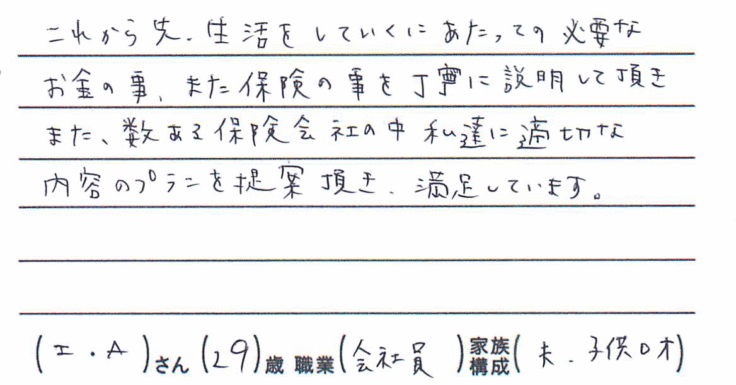 これから先、生活をしていくにあたっての必要な
お金の事、また保険の事を丁寧に説明して頂き
また、数ある保険会社の中 私達に適切な
内容のプランを提案頂き、満足しています。
(I・A)さん(29)歳 職業(会社員)家族構成(夫、子供0才)